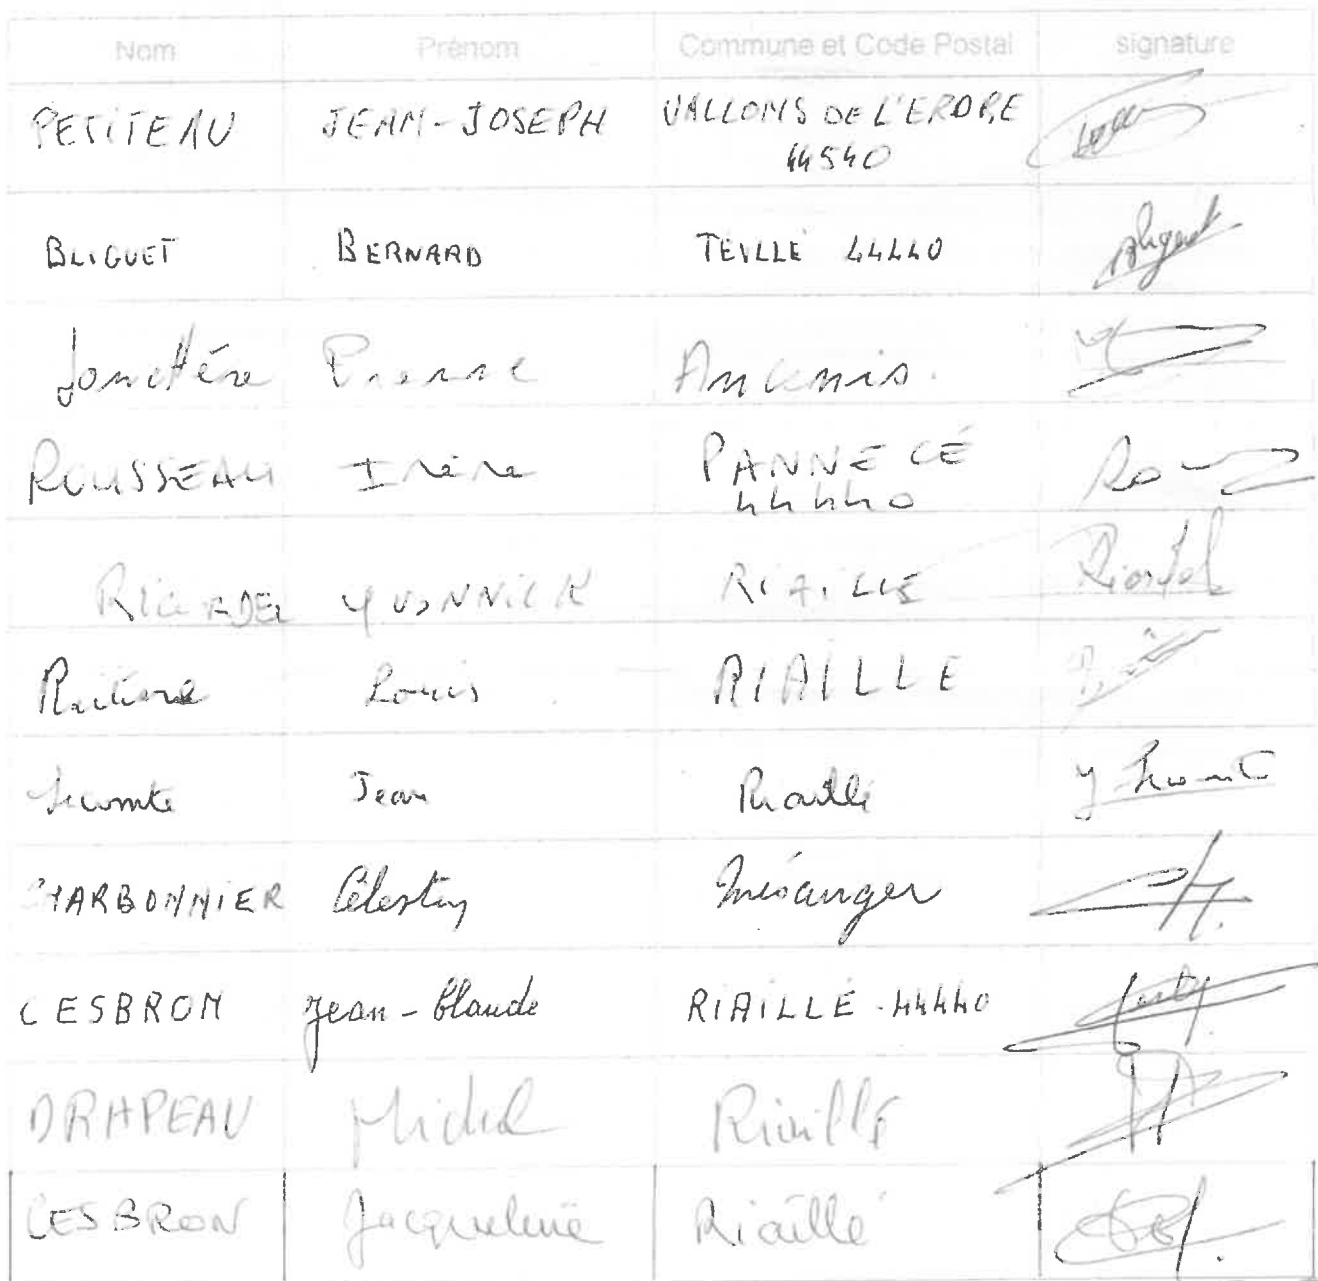 Nom Prénom Commune et Code Postal signature
PETITEAU JEAN-JOSEPH VALLONS DE L'ERDRE
44540
BLIGUET BERNARD TEILLÉ 44440
Pierre Ancenis.
ROUSSEAU Irène PANNECÉ
44440
RICARDEL YVONNICK RIAILLE
Louis RIAILLE
Lecomte Jean Riaillé
CHARBONNIER Célestin Mésanger
CESBRON Jean-Claude RIAILLÉ - 44440
DRAPEAU Michel Riaillé
CESBRON Jacqueline Riaillé